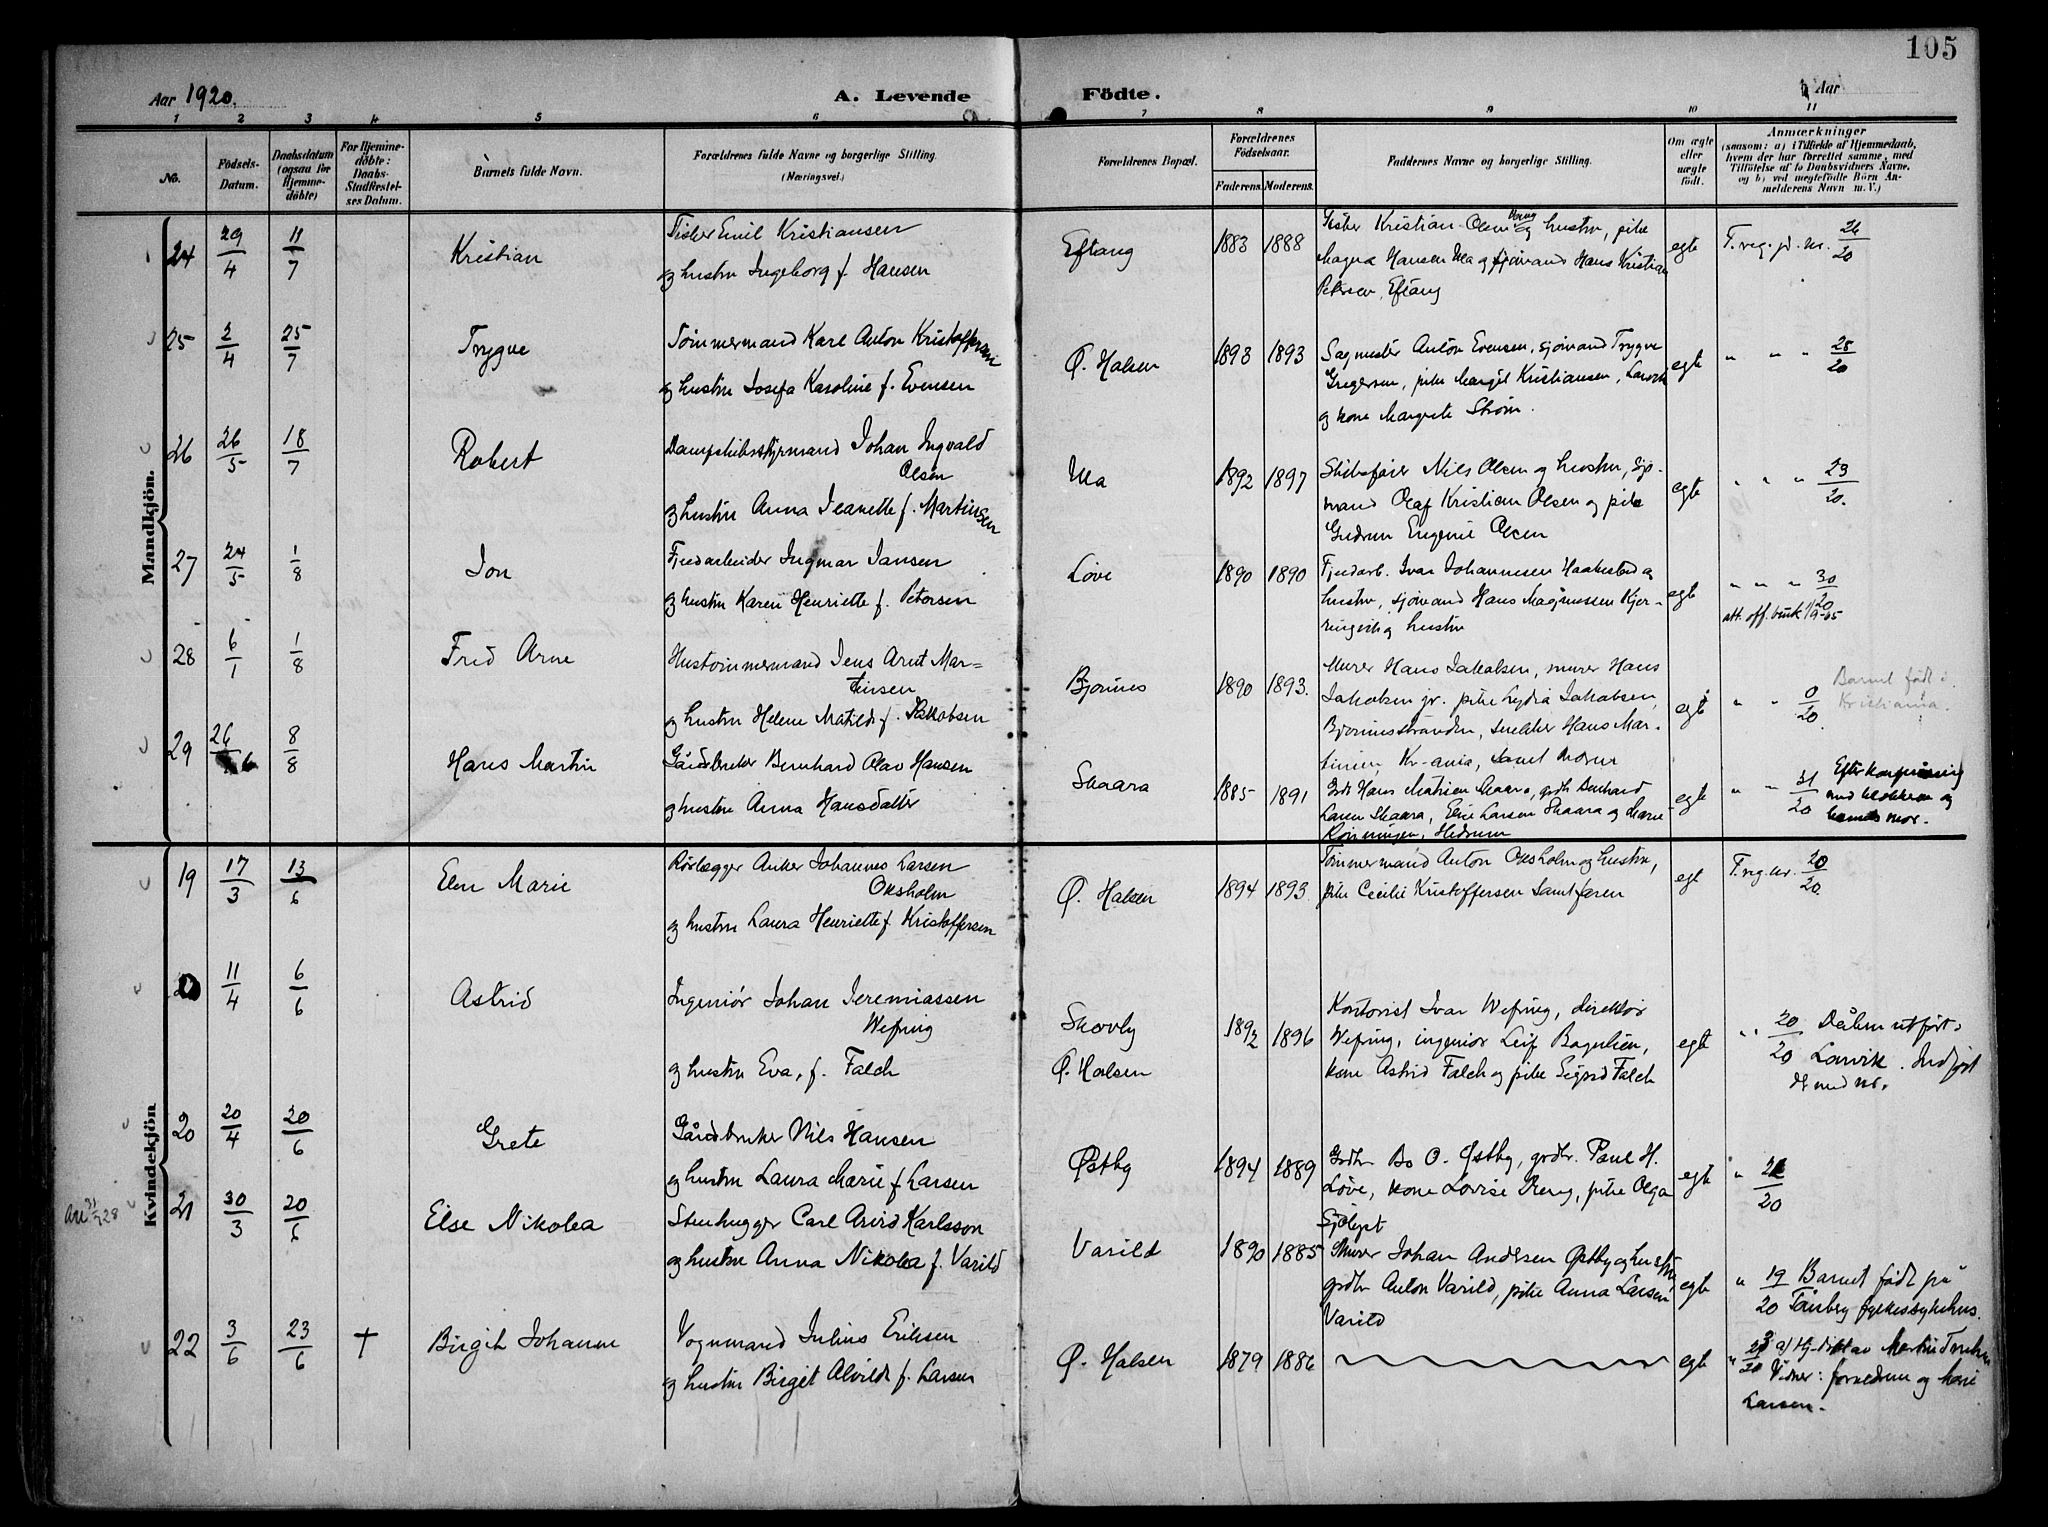 105
Aar 1920.
A. Levende Födte.
Aar
1 2 3 4 5 6 7 8 9 10 11
No.
Födsels-Datum.
Daabsdatum (ogsaa for Hjemme-döbte)
For Hjemme-döbte: Daabs-Stadfæstel-ses Datum.
Barnets fulde Navn.
Forældrenes fulde Navne og borgerlige Stilling.
(Næringsvei.)
Forældrenes Bopæl.
Forældrenes Födselsaar.
Faderens. Moderens.
Faddernes Navne og borgerlige Stilling.
Om ægte eller uægte födt.
Anmærkninger
(saasom: a) i Tilfælde af Hjemmedaab, hvem der har forrettet samme, med Tilföielse af to Daabsvidners Navne, og b) ved uægtefödte Börn An-melderens Navn m. V.)
Mandkjön.
24 29/4 11/7 Kristian
Fisker Emil Kristiansen
og hustru Ingeborg f. Hansen
Eftang 1883 1888
Fisker Kristian Olsen og hustru, pike
Magna Hansen Ula og sjömand Hans Kristian
Petersen, Eftang
egte F. reg. jd. nr. 26/20
25 2/4 25/7 Trygve
Tömmermand Karl Anton Kristoffersen
og hustru Josefa Karoline f. Evensen
Ö. Halsen 1893 1893
Sagmester Anton Evensen, sjömand Trygve
Gregersen, pike Margit Kristiansen, Larvik
og kone Margrete Ström.
egte " " " 28/20
26 26/5 18/7 Robert
Dampskibsstyrmand Johan Ingvald
Olsen
og hustru Anna Jeanette f. Martinsen
Ula 1892 1897
Skibsförer Nils Olsen og hustru, sjö-
mand Olaf Kristian Olsen og pike
Gudrun Eugenie Olsen
egte " " " 29/20.
27 24/5 1/8 Jon
Fjeldarbeider Ingmar Jansen
og hustru Karen Henriette f. Petersen
Löve 1890 1890
Fjeldarb. Ivar Johannesen Haakestad og
hustru, sjömand Hans Magnussen Kjer-
ringvik og hustru
egte " " " 30/20
att. off. bruk 1/9-65
28 6/1 1/8 Fred Arne
Hustömmermand Jens Arnt Mar=
tinsen
og hustru Helene Matilde f. Jakobsen
Bjönnes 1890 1893.
Murer Hans Jakobsen, murer Hans
Jakobsen jr. pike Lydia Jakobsen,
Bjönnesstranden, snekker Hans Mar-
tinsen, Kr-ania, samt moren
egte " " 0/20 Barnet födt i
Kristiania.
29 26/6 8/8 Hans Martin
Gårdsbruker Bernhard Olav Hansen
og hustru Anna Hansdatter
Skaara 1885 1891
Gdb Hans Matisen Skaara, gdb Bernhard
Larsen Skaara, Else Larsen Skaara og Marie
Rönningen, Hedrum
egte " " 31/20 Efter konferering
med klokkeren og
barnets mor.
Kvindekjön
19 17/3 13/6 Elen Marie
Rörlægger Anker Johannes Larsen
Oksholm
og hustru Laura Henriette f. Kristoffersen
Ö. Halsen 1894 1893.
Tömmermand Anton Oksholm og hustru,
pike Cecilie Kristoffersen samt faren
egt F. reg. nr. 20/20
20 11/4 6/6 Astrid
Ingeniör Johan Jeremiassen
Wefring
og hustru Eva, f. Falch
Skovly
Ö. Halsen 1892 1896
Kontorist Ivar Wefring, direktör
Wefring, ingeniör Leif Bogulien,
kone Astrid Falch og pike Sigrid Falch
egte " 20/20 Dåben utfört i
Larvik. Indfört
der med nr.
20 20/4 20/6 Grete
Gårdsbruker Nils Hansen
og hustru Laura Marie f. Larsen
Östby 1894 1889
Gdbr Bo O. Östby, grdbr. Paul H.
Löve, kone Lovise Berg, pike Olga
Sjölyst
egte " 22/20
31/7 28
21 30/3 20/6 Else Nikolea
Stenhugger Carl Arvid Karlsson
og hustru Anna Nikolea f. Varild
Varild 1890 1885
Murer Johan Andersen Östby og hustru
grdbr Anton Varild, pike Anna Larsen
Varild
egte " 19/20 Barnet födt på
Tönsberg fylkessykehus.
22 3/6 23/6 † Birgit Johanne
Vognmand Julius Eriksen
og hustru Birgit Alvilde f. Larsen
Ö. Halsen 1879 1886
egte " 23/20 a/ Hj-döbt av Martin
Vidner: forældrene og Marie
Larsen.